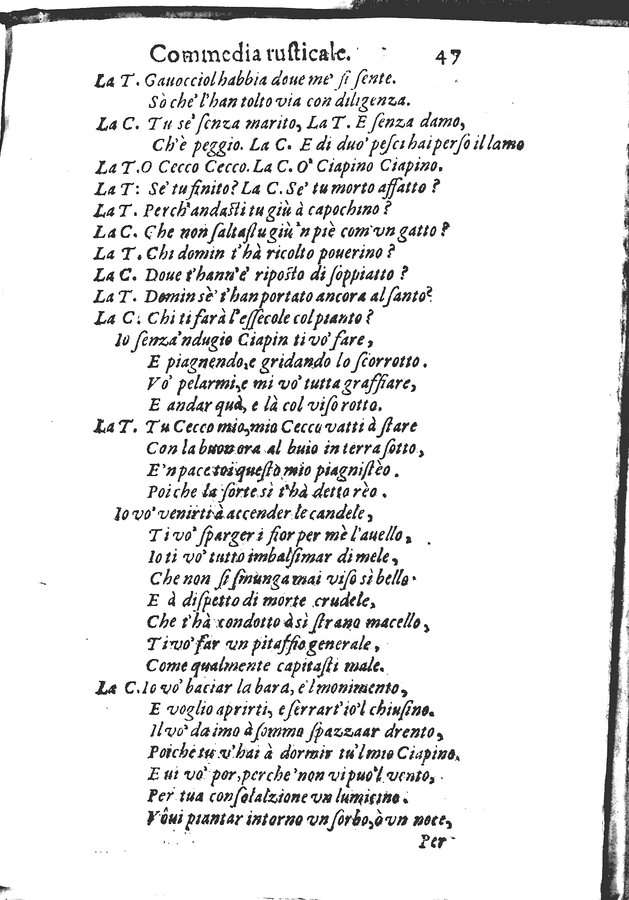 Commedia rusticale. 47
La T. Gauocciol habbia doue me' si sente.
Sò che l'han tolto via con diligenza.
La C. Tu se' senza marito, La T. E senza damo,
Ch'è peggio. La C. E di duo' pesci hai perso il lamo
La T. O Cecco Cecco. La C. O' Ciapino Ciapino.
La T: Se' tu finito? La C. Se' tu morto affatto?
La T. Perch' andasti tu giù à capochino?
La C. Che non saltastu giù 'n piè com' vn gatto?
La T. Chi domin t'hà ricolto pouerino?
La C. Doue t'hann'e' riposto di soppiatto?
La T. Domin sè t'han portato ancora al santo?
La C. Chi ti farà l'essecole col pianto?
Io senza 'ndugio Ciapin ti vo' fare,
E piagnendo, e gridando lo scorrotto.
Vo' pelarmi, e mi vo' tutta graffiare,
E andar quà, e là col viso rotto.
La T. Tu Cecco mio, mio Cecco vatti à stare
Con la buon ora al buio in terra sotto,
E'n pace toi questo mio piagnistèo.
Poi che la sorte sì t'hà detto rèo.
Io vo' venirti à accender le candele,
Ti vo' sparger i fior per mè l'auello,
Io ti vo' tutto imbalsimar di mele,
Che non si smunga mai viso sì bello.
E à dispetto di morte crudele,
Che t'hà condotto à sì strano macello,
Ti vo' far vn pitaffio generale,
Come qualmente capitasti male.
La C. Io vo' baciar la bara, e'l monimento,
E voglio aprirti, e serrart' io'l chiusino.
Il vo' da imo à sommo spazzaar drento,
Poiche tu v'hai à dormir tu'l mio Ciapino.
E ui vo' por, perche 'non vi puo'l vento,
Per tua consolalzione vn lumicino.
Vôui piantar intorno vn sorbo, ò vn noce,
Per